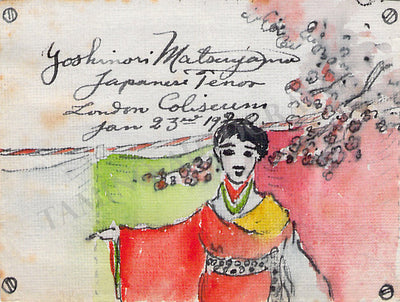 Yoshinori Matsuyama
Japanese Tenor
London Coliseum
Jan 23rd